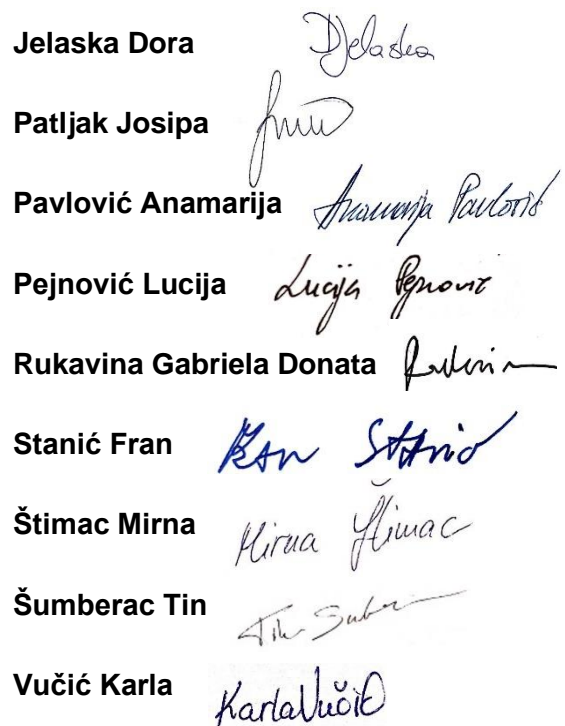 Jelaska Dora DJelaska
Patljak Josipa
Pavlović Anamarija Anamarija Pavlović
Pejnović Lucija Lucija Pejnović
Rukavina Gabriela Donata
Stanić Fran Fran Stanić
Štimac Mirna Mirna Štimac
Šumberac Tin Tin
Vučić Karla Karla Vučić